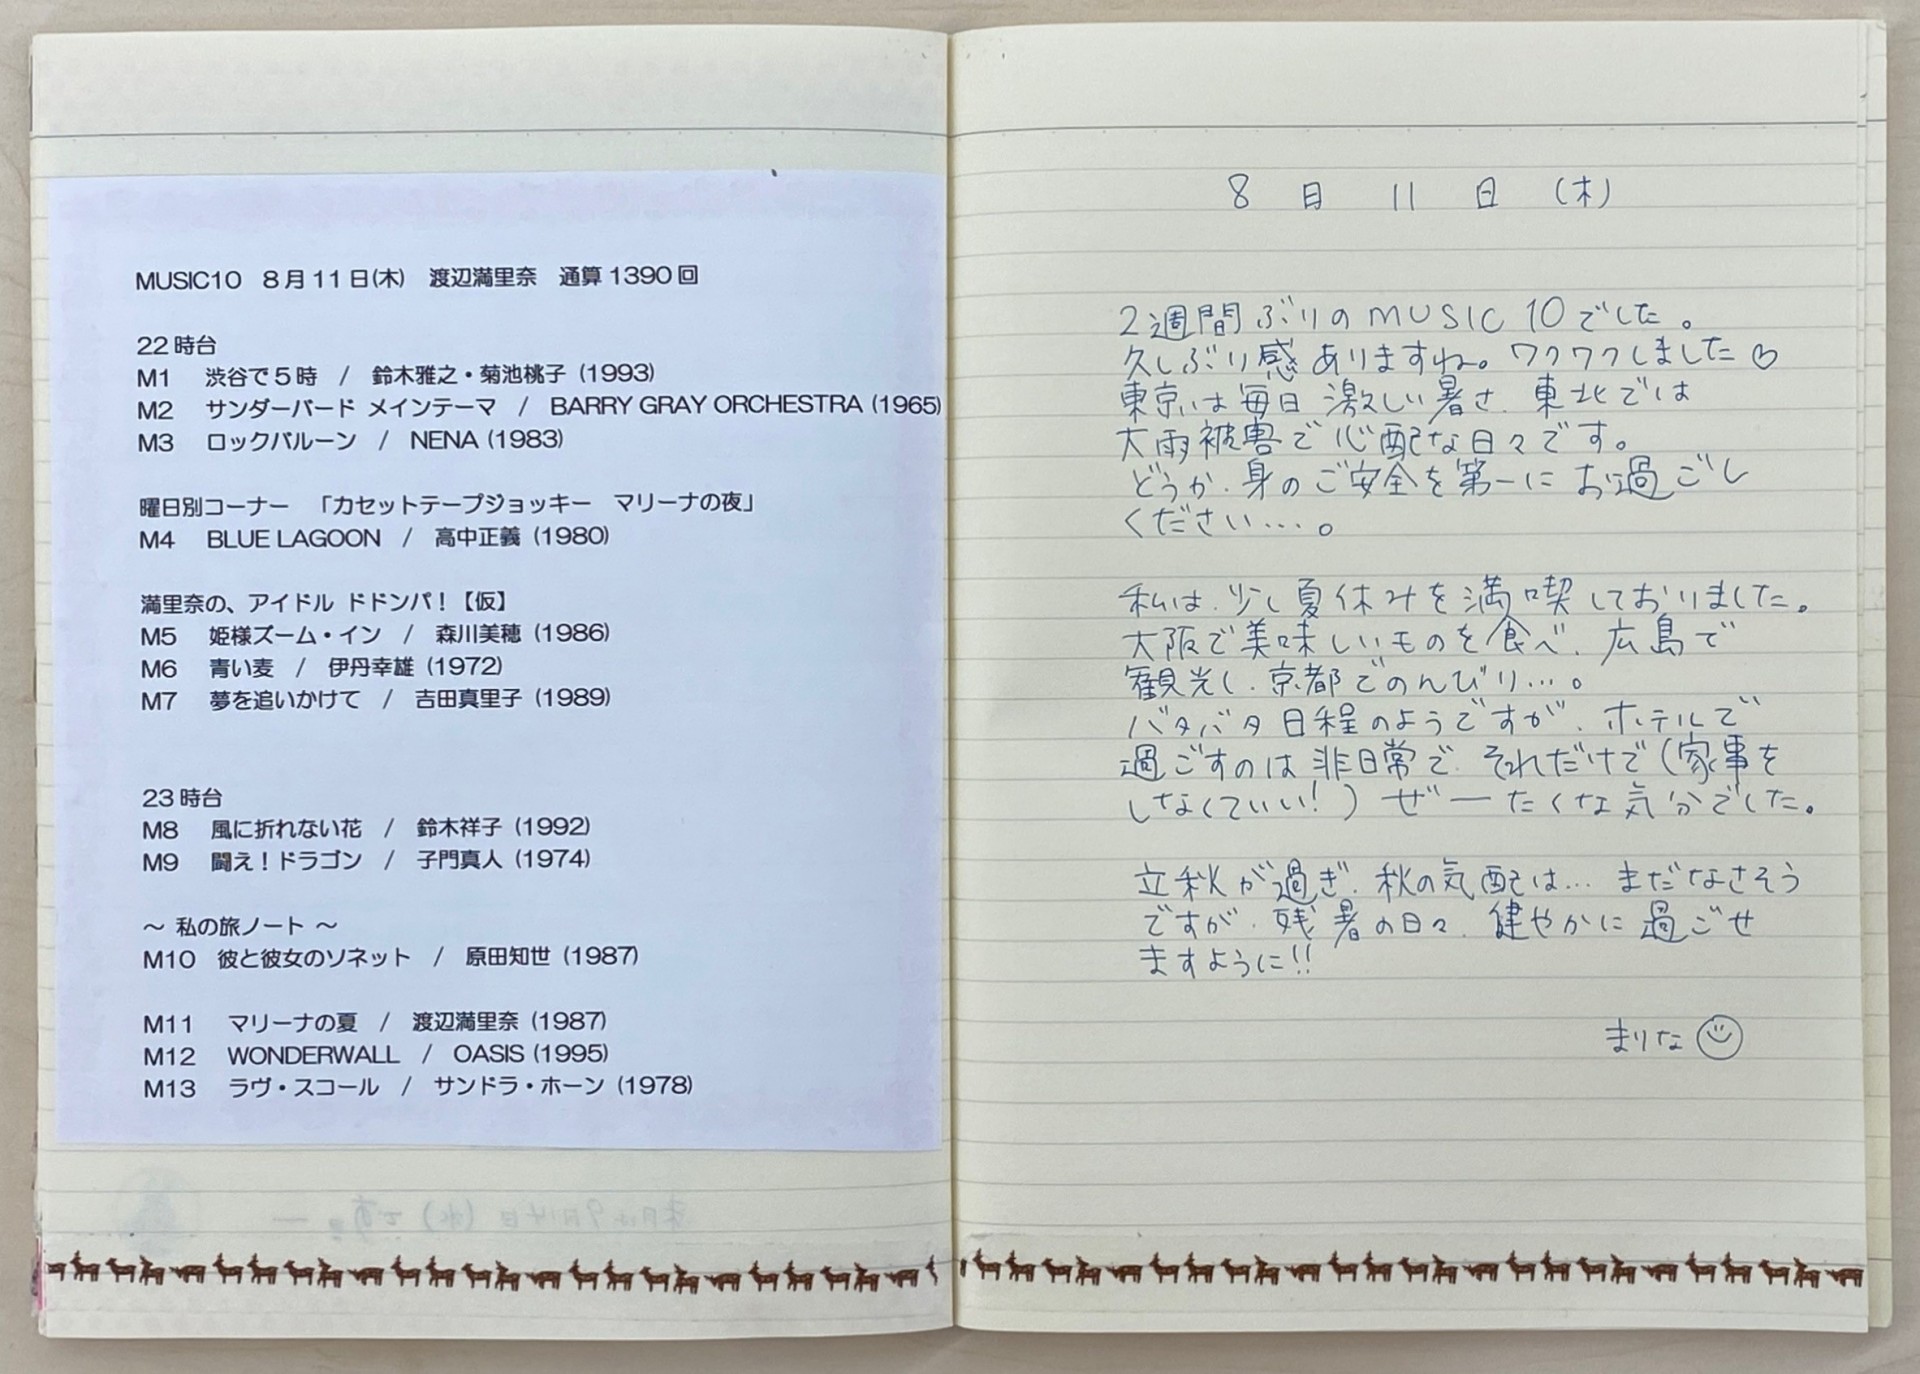 MUSIC10　8月11日(木)　渡辺満里奈　通算1390回
22時台
M1　渋谷で5時　/　鈴木雅之・菊池桃子 (1993)
M2　サンダーバード メインテーマ　/　BARRY GRAY ORCHESTRA (1965)
M3　ロックバルーン　/　NENA (1983)
曜日別コーナー　「カセットテープジョッキー　マリーナの夜」
M4　BLUE LAGOON　/　高中正義 (1980)
満里奈の、アイドル ドドンパ！【仮】
M5　姫様ズーム・イン　/　森川美穂 (1986)
M6　青い麦　/　伊丹幸雄 (1972)
M7　夢を追いかけて　/　吉田真里子 (1989)
23時台
M8　風に折れない花　/　鈴木祥子 (1992)
M9　闘え！ドラゴン　/　子門真人 (1974)
～ 私の旅ノート ～
M10　彼と彼女のソネット　/　原田知世 (1987)
M11　マリーナの夏　/　渡辺満里奈 (1987)
M12　WONDERWALL　/　OASIS (1995)
M13　ラヴ・スコール　/　サンドラ・ホーン (1978)
8月11日(木)
2週間ぶりのMUSIC 10でした。
久しぶり感ありますね。ワクワクしました♡
東京は毎日激しい暑さ、東北では
大雨被害で心配な日々です。
どうか、身のご安全を第一にお過ごし
ください…。
私は、少し夏休みを満喫しておりました。
大阪で美味しいものを食べ、広島で
観光し、京都でのんびり…。
バタバタ日程のようですが、ホテルで
過ごすのは非日常で、それだけで(家事を
しなくていい!)ぜーたくな気分でした。
立秋が過ぎ、秋の気配は…まだなさそう
ですが、残暑の日々、健やかに過ごせ
ますように!!
まりな